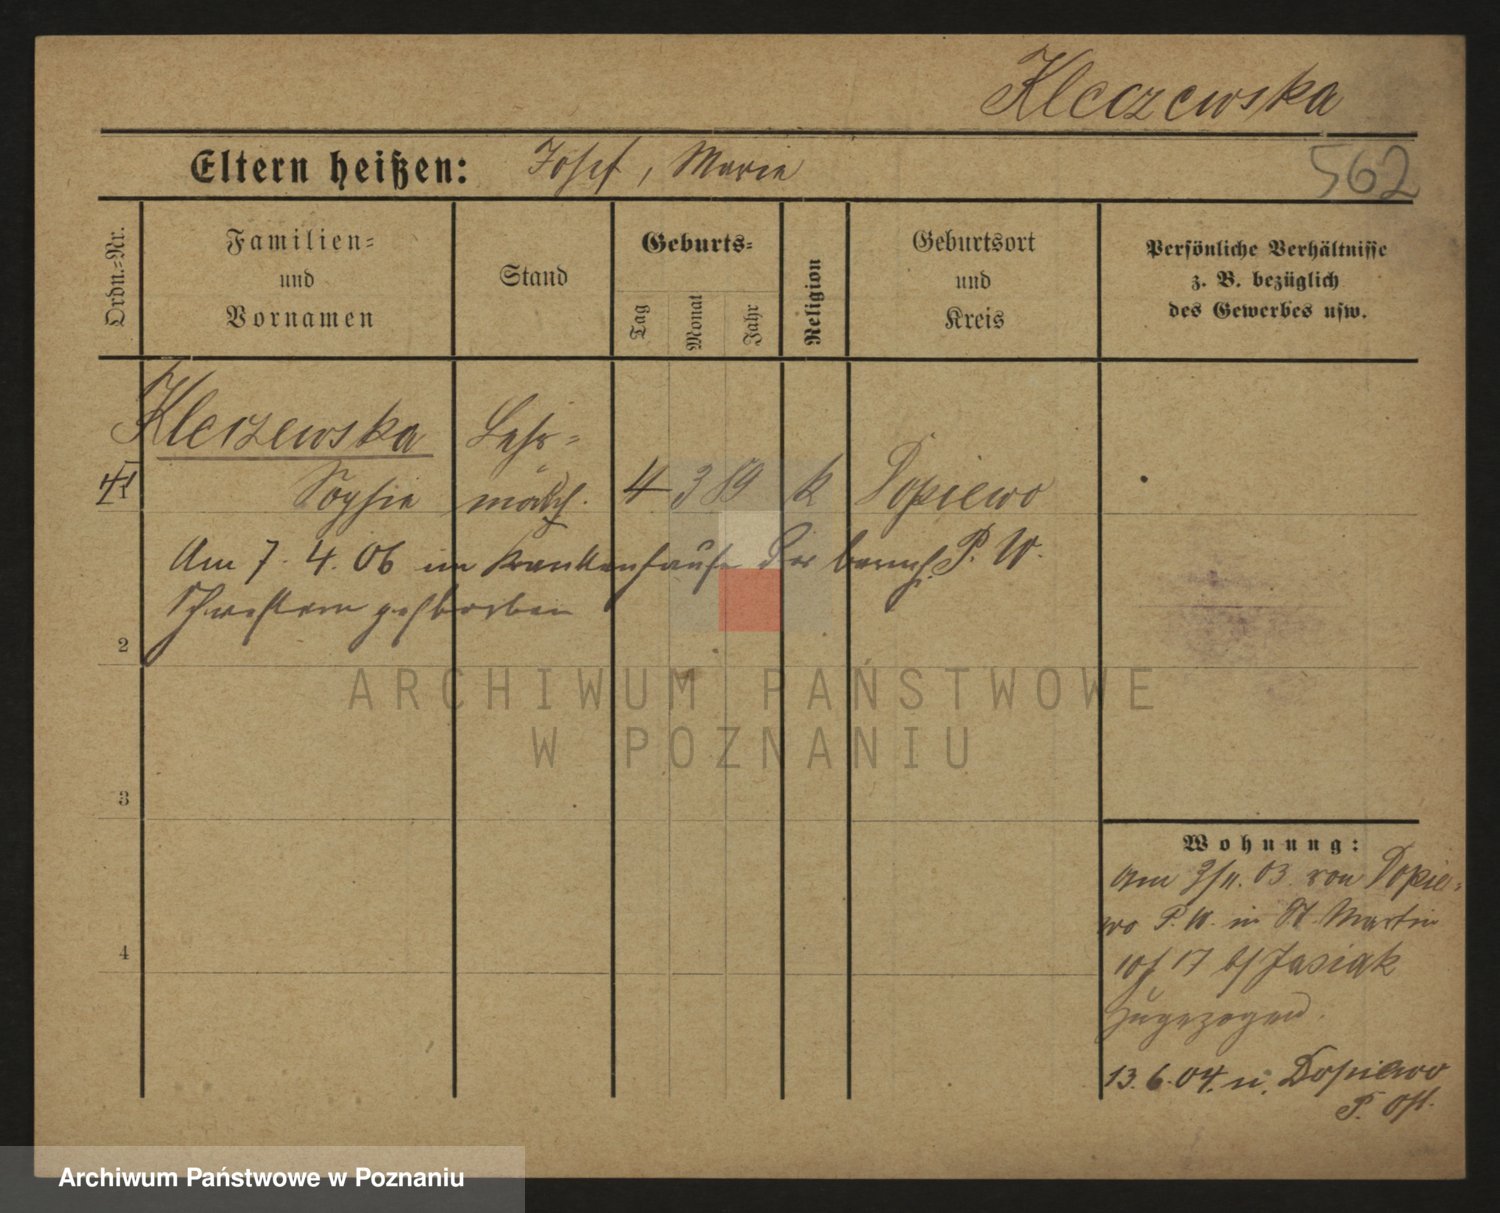 Kleczewska
Eltern heißen: Josef, Marie
562
Ordn.-Nr.
Familien-
und
Vornamen
Stand
Geburts-
Tag
Monat
Jahr
Religion
Geburtsort
und
Kreis
Persönliche Verhältnisse
z. B. bezüglich
des Gewerbes usw.
Kleczewska Lehr-
Sophie mädch. 4 3 89 k Dopiewo
Am 7. 4. 06 im Krankenhause der barmh. P. W.
Schwestern gestorben
2
3
4
Wohnung:
Am von Dopie-
wo P. W. in St. Martin
17 b/ Jasiak
zugezogen.
13. 6. 04. n. Dopiewo
P. Ost.
ARCHIWUM PAŃSTWOWE
W POZNANIU
Archiwum Państwowe w Poznaniu